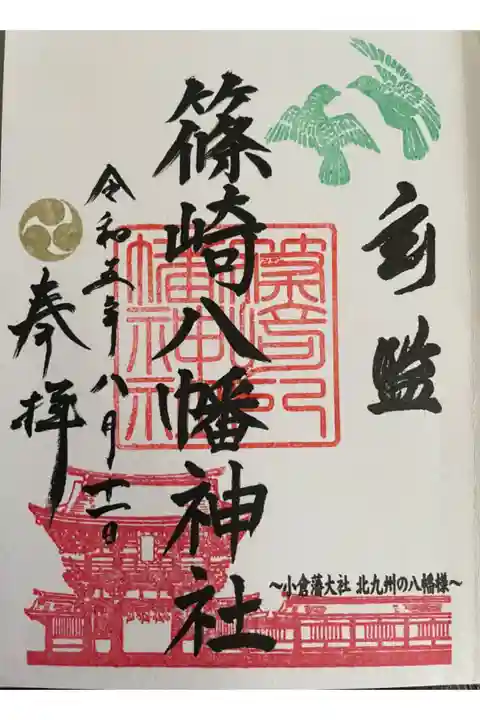 篠崎八幡神社
令和五年八月十一日
奉拝
篠崎八
幡神社
～小倉藩大社 北九州の八幡様～